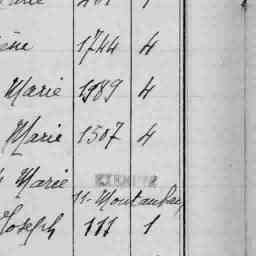 ène 1744 4
Marie 1989 4
Marie 1507 4
Marie
11-Montauban
Joseph 111 1